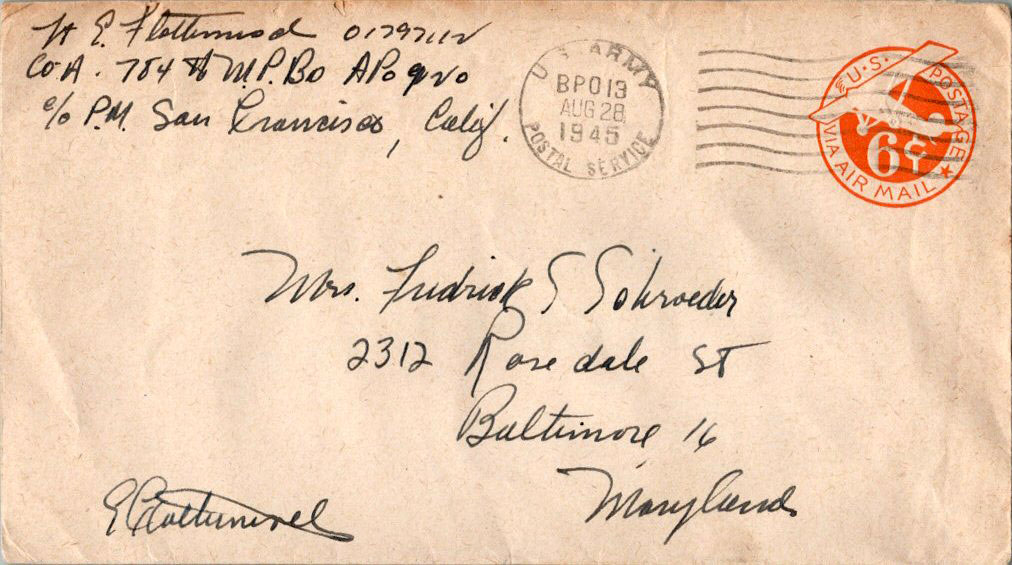 Lt E. Flottemesch 01797112
Co A. 784th M.P. Bn APO 920
c/o P.M. San Francisco, Calif.
U.S. ARMY
BPO 13
AUG 28
1945
POSTAL SERVICE
U.S. POSTAGE
6¢
VIA AIR MAIL
Mrs. Fredrick S Schroeder
2312 Rosedale St
Baltimore 16
Maryland